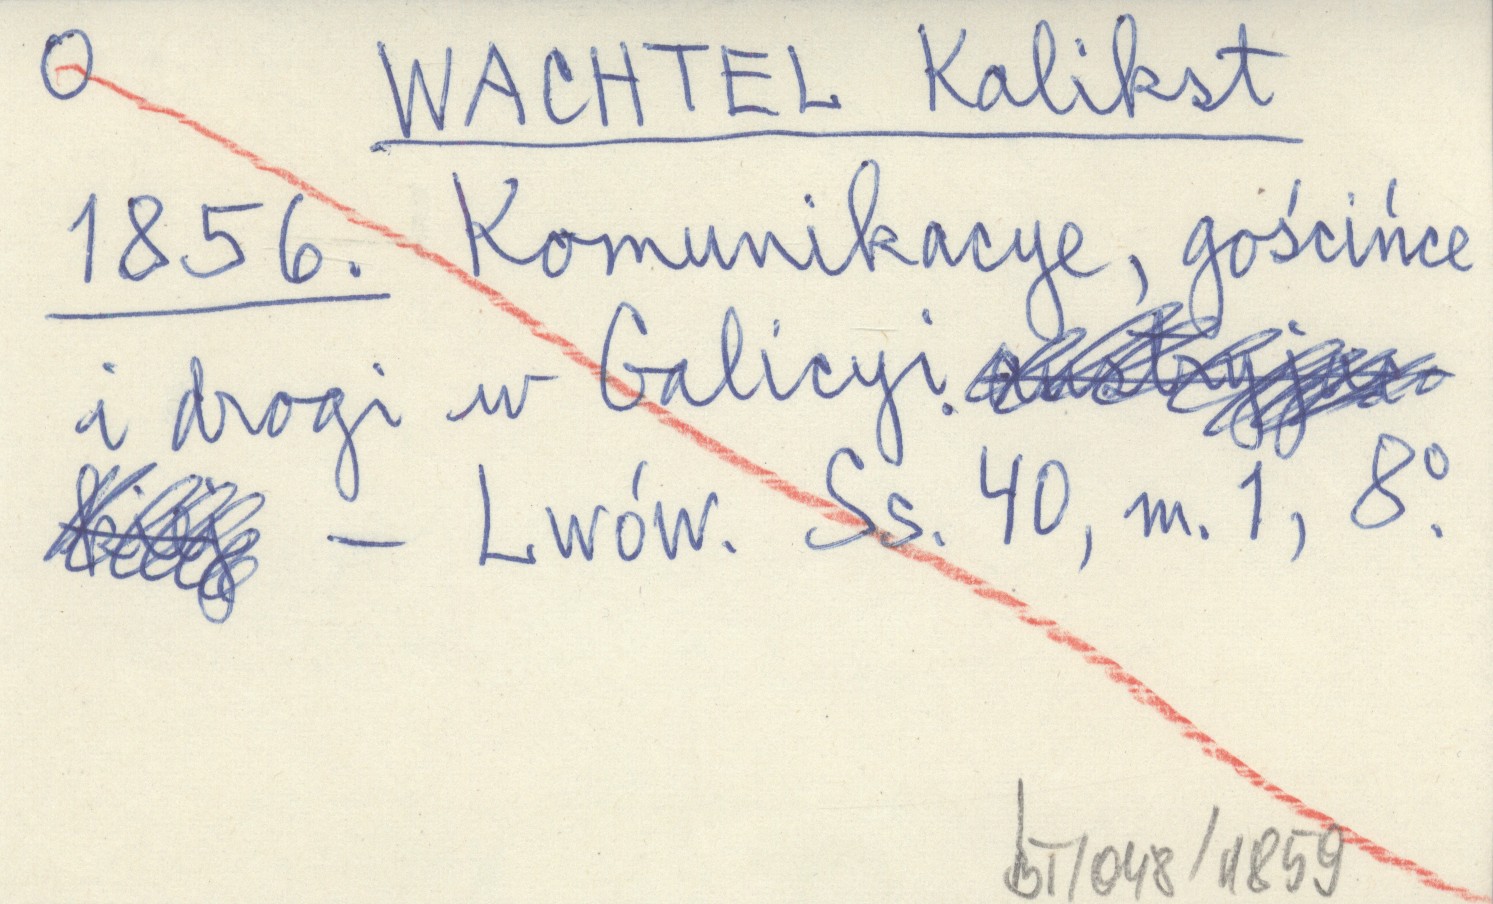 O WACHTEL Kalikst
1856. Komunikacye, gościńce
i drogi w Galicyi.
– Lwów. Ss. 40, m. 1, 8°.
bT/048/1859